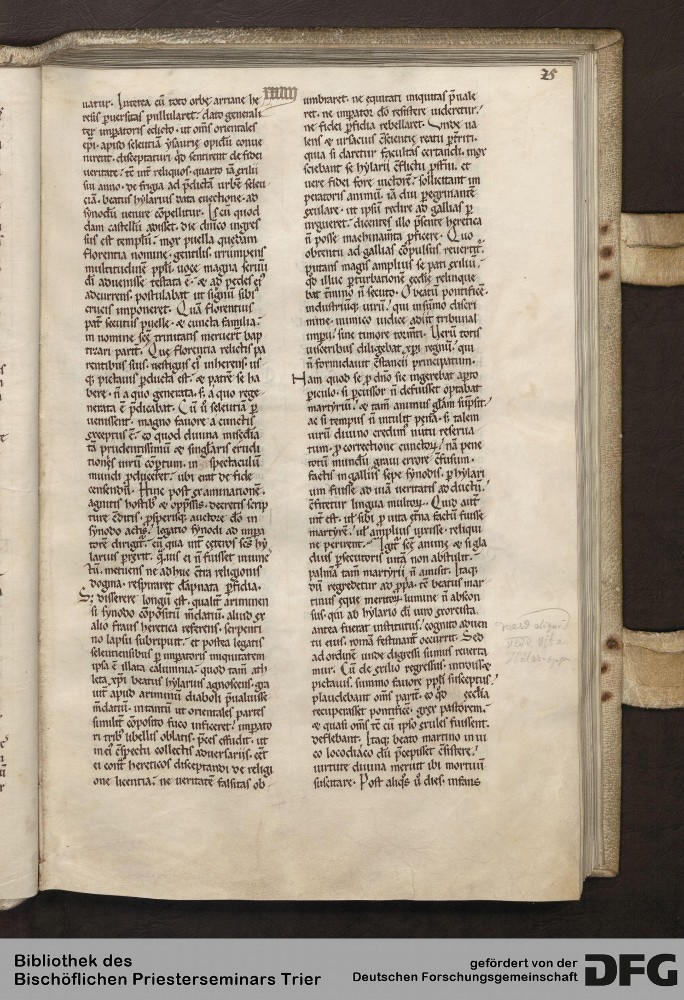 25
uatur. Interea cū toto orbe arriane he
resis ꝑuersitas pullularet. dato generali
ter impatoris edicto. ut om̄s orientales
ep̄i. apud seleuciā ysaurię opidū conue
nirent. disceptaturi qd̄ sentirent de fidei
ueritate. tē int̄ reliquos. quarto iā exilii
sui anno. de frigia ad p̄dictā urbē seleu
ciā. beatus hylarius data euectione. ad
synodū uenire cōpellitur. Is cū quod
dam castellū adiset. die dn̄ico ingres
sus est templū. mox puella quędam
florentia nomine. gentilis. irrumpens
multitudinē ppl̄i. uoce magna seruū
dī aduenisse testata ē. & ad pedes ei
adcurrens. postulabat ut signū sibi
crucis imponeret. Quā florentius
pat̄ secutus puellę. & cuncta familia.
in nomine scę̄ trinitatis meruer̄ bap
tizari parit̄. Que florentia relictis pa
rentibus suis. uestigiis ei inherens. us
q; pictauis ꝑducta est. & patrē se ha
bere. n̄ a quo generata. s; a quo rege
nerata ē p̄dicabat. Cū ū seleuciā ꝑ
uenissent. magno fauore a cunctis
exceptus ē. eo quod diuina mise̅dia
tā prudentissimū & singularis erudi
tionis uirū cōptum. in spectaculū
mundi ꝑduceret. ubi erat de fide
censendū. Hinc post examinationē.
agnitis hostib; & opp̄ssis. decretis scrip
ture editis. ꝓsperisq; auctore dō in
synodo actis. legatio synodi ad impa
torē dirigit̄. cū qua int̄ ceteros scs̄ hy
larius ꝑrexit. qͣuis ei n̄ fuisset iniunc
tū. metuens ne adhuc c̄tra religionis
dogma. respiraret dāpnata ꝑfidia.
S; disserere longū est. qualit̄ ariminen
si synodo cōpositū m̄datiū. aliud ex
alio fraus heretica referens. serpenti
no lapsu subripuit. et postea legatis
seleuciensibus ꝑ impatoris iniquitatem
ipsa ē illata calumnia. quod tam ath
leta xp̄i beatus hylarius agnoscens. gra
uit̄ apud ariminū diaboli p̄ualuisse
m̄datiū. intantū ut orientales partes
similit̄ cōposito fuco inficeret. impato
ri trib; libellis oblatis. p̄ces effudit. ut
in ei c̄spectu collectis aduersariis. c̄et
ei cont̄ hereticos disceptandi de religi
one licentia. ne ueritatē falsitas ob
umbraret. ne equitati iniquitas p̄uale
ret. ne impator dō resistere uideretur.
ne fidei ꝑfidia rebellaret. Unde ua
lens & ursacius c̄scientię reatu ꝑt̄riti.
quia si daretur facultas certandi. mox
sciebant se hylarii c̄flictu ꝓstni. et
uere fidei fore uictorē. sollicitant im
peratoris animū. iā diu peregrinantē
exulare. ut ipsū redire ad gallias ꝑ
urgueret. dicentes illo p̄sente heretica
n̄ posse machinam̄ta ꝓficere. Quo
obtentu ad gallias cōpulsus reuertit̄.
putans magis amplius se pati exiliū.
qd̄ illuc ꝑturbationē ęcclię relinque
bat tm̄ino n̄ secuto. O beatū pontificē.
industriūq; uirū. qui insūmo discri
mine. inimico iudice adiit tribunal
impii. sine timore tortm̄ti. Verū totis
uisceribus diligebat xp̄i regnū. qui
n̄ formidauit c̄stancii principatum.
Iam quod se ꝓ dn̄o sic ingerebat apto
periculo. si percussor n̄ defuisset optabat
martyriū. & tam̄ animus glām sūpsit.
ac si tempus n̄ intulit penā. s; talem
uirū diuino credim̄ nutu reserua
tum. ꝓ correctione cunctorū. nā pene
totū mundū graui errore c̄fusum.
factis in galliis sepe synodis. ꝑ hylari
um fuisse ad uiā ueritatis ad ductū.
c̄fitetur lingua multorū. Quid aut̄
int̄ est. ut̄ sibi ꝓ uita ęt̄na factū fuisse
martyrē. ut̄ amplius uixisse. reliqui
ne perirent. Igit̄ sc̄ę animę & si gla
dius ꝑsecutoris uitā non abstulit.
palmā tam̄ martyrii n̄ amisit. Itaq;
dū regredetur ad ꝓpa. tē beatus mar
tinus ęque meritorū lumine n̄ abson
sus. qui ab hylario dī uiro exorcista
antea fuerat institutus. cognito aduen
tu eius. romā festinant̄ occurrit. Sed
ad ordinē unde digressi sumus reuerta
mur. Cū de exilio regressus. introiiss&
pictauis. summo fauore ppl̄i susceptus.
plaudebant om̄s parit̄. eo qd̄ ęcclia
recuperasset pontificē. grex pastorem.
& quasi om̄s tē cū ipso exules fuissent.
deflebant. Itaq; beato martino in ui
co locodiaco diū p̄cepisset c̄sistere.
uirtute diuina meruit ibi mortuū
suscitare. Post aliqͦs ū dies. infans
Bibliothek des
Bischöflichen Priesterseminars Trier
gefördert von der
Deutschen Forschungsgemeinschaft
DFG